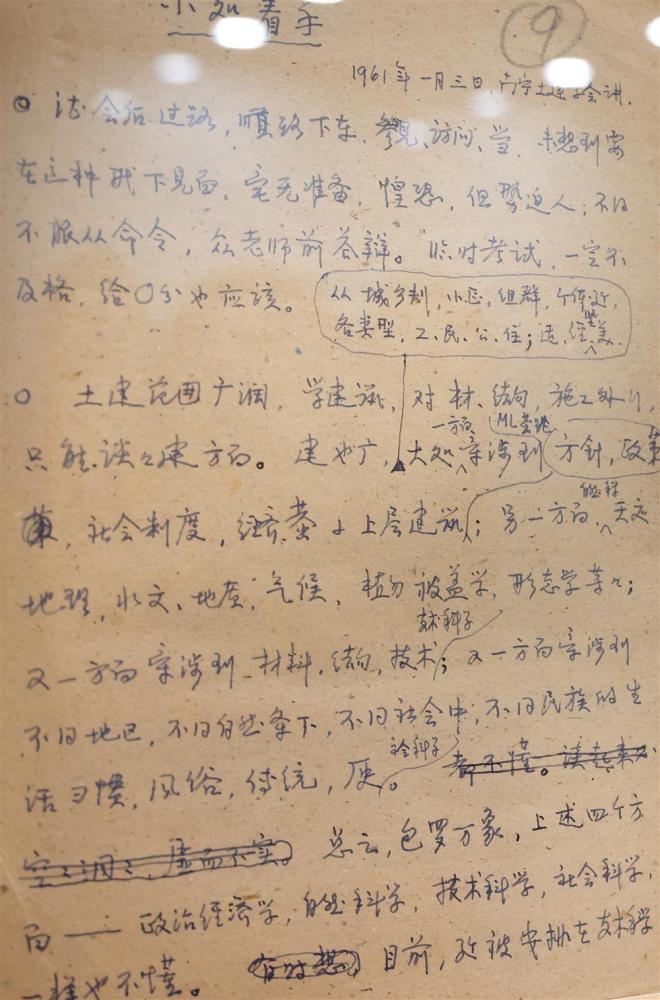 小处着手
9
1961年一月三日,南宁土建学会讲.
○ 过路,顺路下车、参观、访问、学、未想到要
在这种 下见面,毫无准备,惶恐,但势迫人,不日
不服从命令,众老师前答辩。临时考试,一定不
及格,给○分也应该。
从城乡 小区,组群,个体建,
各类型,工、民、公、住;适、经、美.
坚
○ 土建范围广阔,学建 对材、结构,施工外行,
一方面 ML
只能谈之建方面。建也广,大如牵涉到方针,政策
自然科
社会制度,经济基 上层建筑;另一方面,天文
地理,水文、地质、气候、植物被盖学,形态学等々;
技术科学
又一方面牵涉到材料,结构,技术;又一方面牵涉到
不同地区,不同自然条下,不同社会中,不同民族的生
社会科学
活习惯,风俗,传统,历史。 都不懂。谈起来必
空々洞々,虚而不实。总之,包罗万象,上述四个方
面——政治经济学,自然科学,技术科学,社会科学,
一样也不懂。有时想,目前,建被安排在技术科学